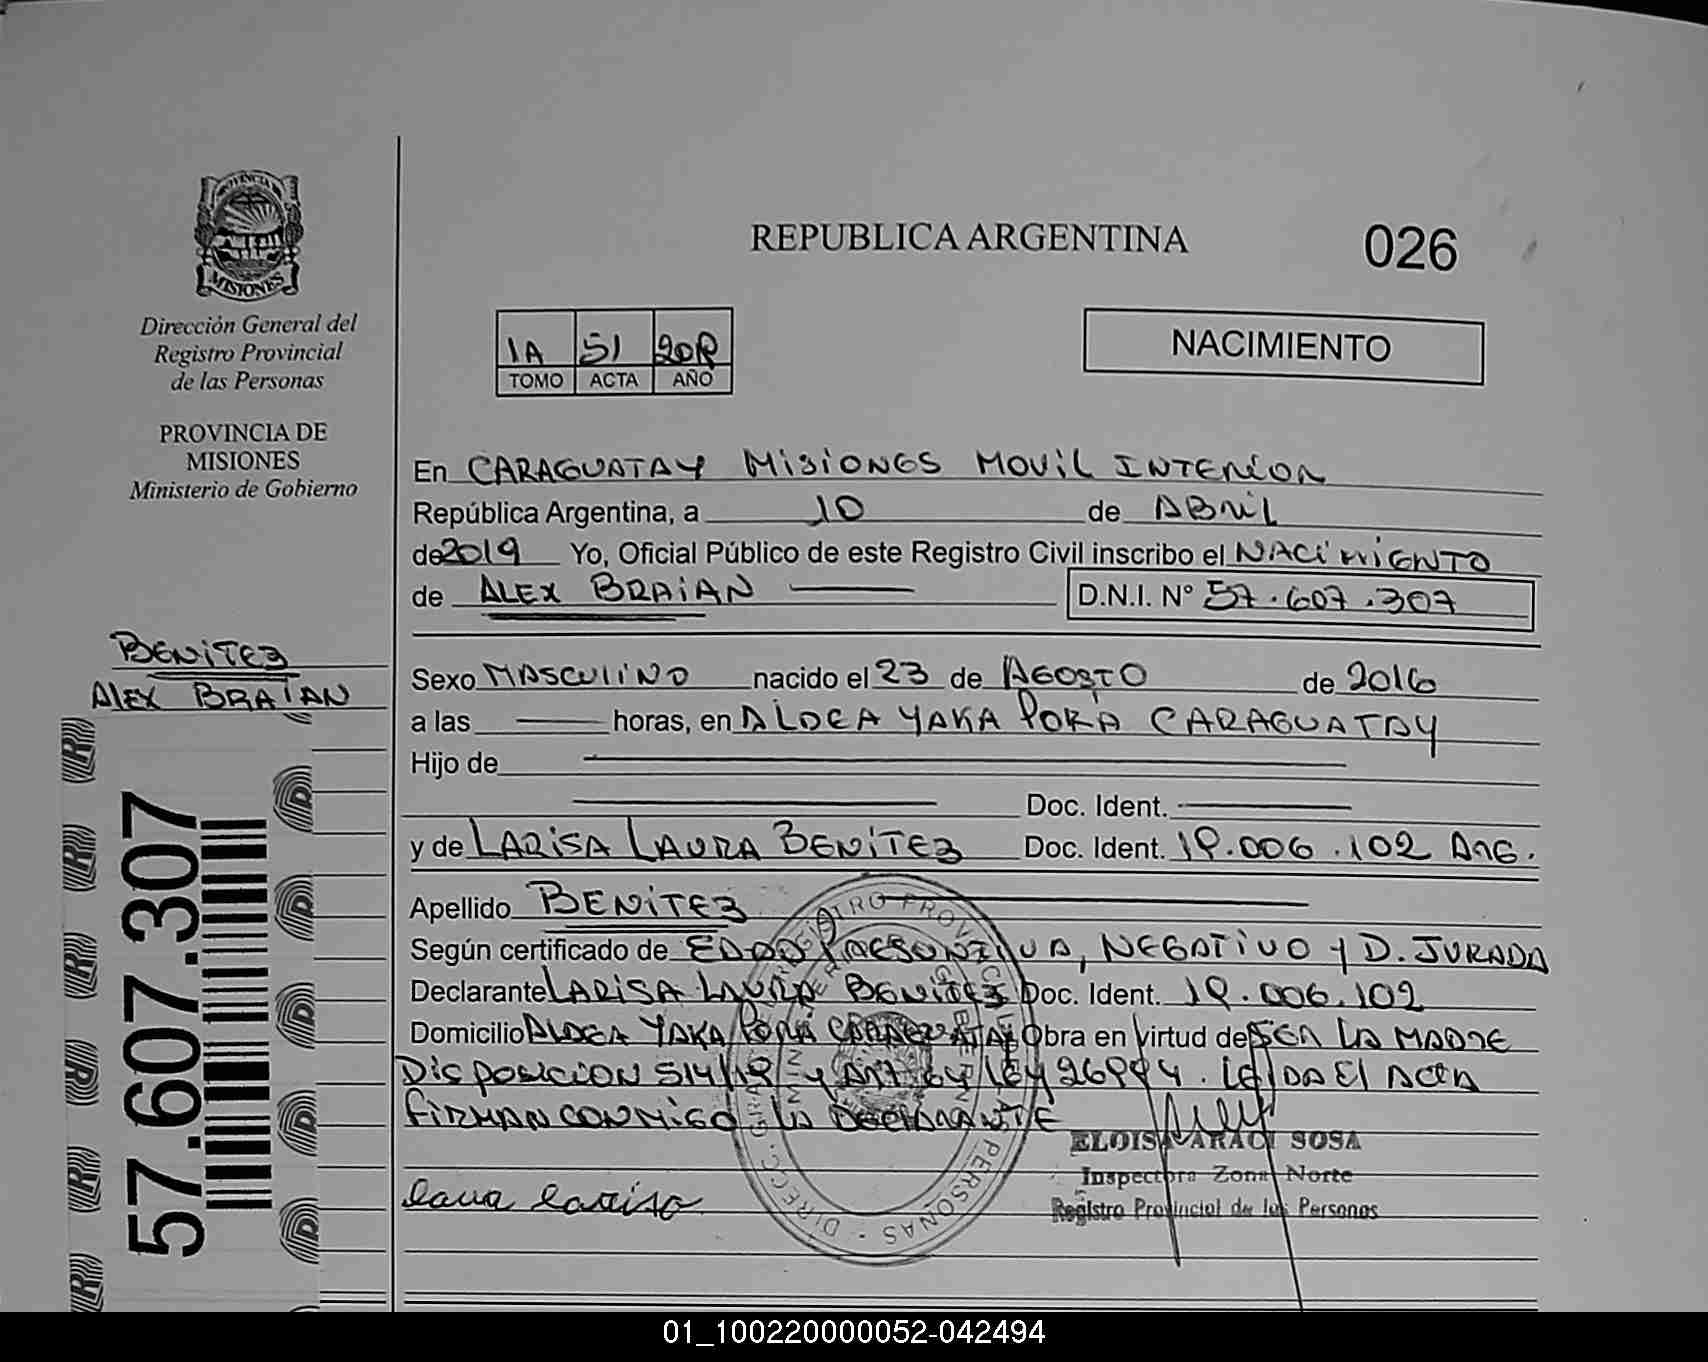 PROVINCIA DE
MISIONES
Dirección General del
Registro Provincial
de las Personas
PROVINCIA DE
MISIONES
Ministerio de Gobierno
REPUBLICA ARGENTINA
026
1A 51
TOMO ACTA AÑO
NACIMIENTO
En CARAGUATAY MISIONES MOVIL INTERIOR
República Argentina, a 10 de ABRIL
de 2019 Yo, Oficial Público de este Registro Civil inscribo el NACIMIENTO
de ALEX BRAIAN D.N.I. N° 57.607.307
BENITEZ
ALEX BRAIAN
57.607.307
Sexo MASCULINO nacido el 23 de AGOSTO de 2016
a las horas, en ALDEA YAKA PORA CARAGUATAY
Hijo de
Doc. Ident.
y de LARISA LAURA BENITEZ Doc. Ident. 19.006.102 ARG.
Apellido BENITEZ
Según certificado de EDAD PRESUNTIVA, NEGATIVO Y D. JURADA
Declarante LARISA LAURA BENITEZ Doc. Ident. 19.006.102
Domicilio ALDEA YAKA PORA CARAGUATAY Obra en virtud de SER LA MADRE
DISPOSICION 514/19 Y ART 64 LEY 26994. LEIDA EL ACTA
FIRMAN CONMIGO LA DECLARANTE
laura larisa
ELOISA ARACI SOSA
Inspectora Zona Norte
Registro Provincial de las Personas
01_100220000052-042494